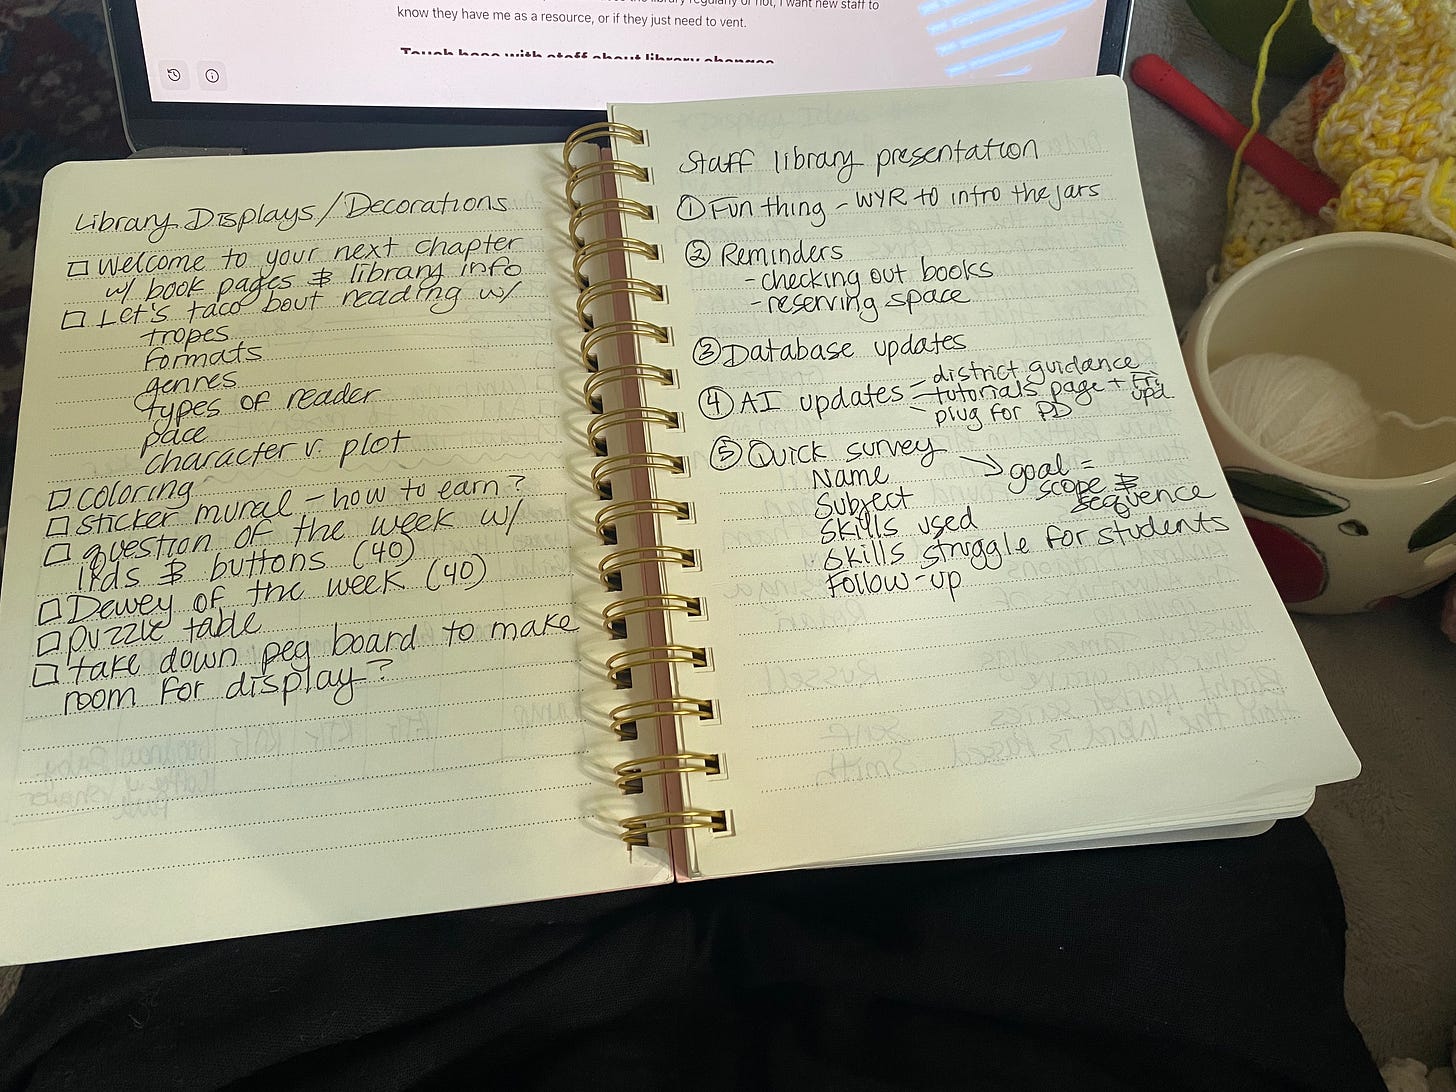 know they have me as a resource, or if they just need to vent.
Touch base with staff about library changes
Library Displays/Decorations
□ Welcome to your next chapter
w/ book pages & library info
□ Let's taco bout reading w/
tropes
formats
genres
types of reader
pace
character v. plot
□ coloring
□ sticker mural - how to earn?
□ question of the week w/
lids & buttons (40)
□ Dewey of the week (40)
□ puzzle table
□ take down peg board to make
room for display?
Staff library presentation
① Fun thing - WYR to intro the jars
② Reminders
- checking out books
- reserving space
③ Database updates
④ AI updates - district guidance
- tutorials page + Fri upd.
- plug for PD
⑤ Quick survey → goal =
scope & sequence
Name
Subject
Skills used
Skills struggle for students
Follow-up